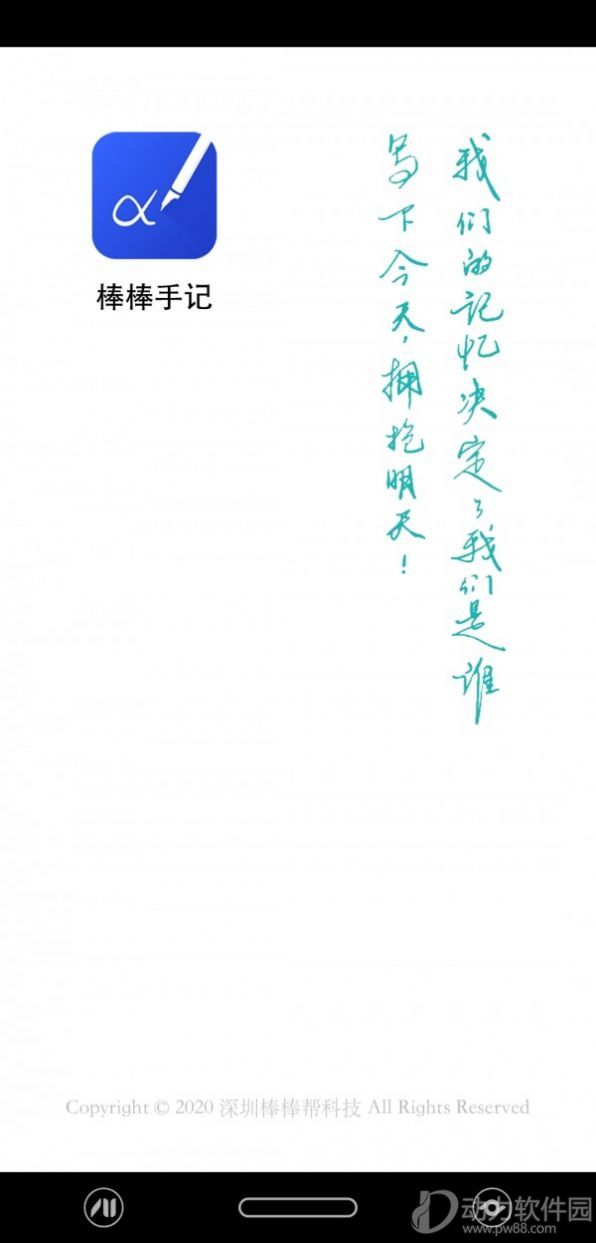 棒棒手记
我们的记忆决定了我们是谁
写下今天，拥抱明天！
Copyright © 2020 深圳棒棒帮科技 All Rights Reserved
动力软件园
www.pw88.com